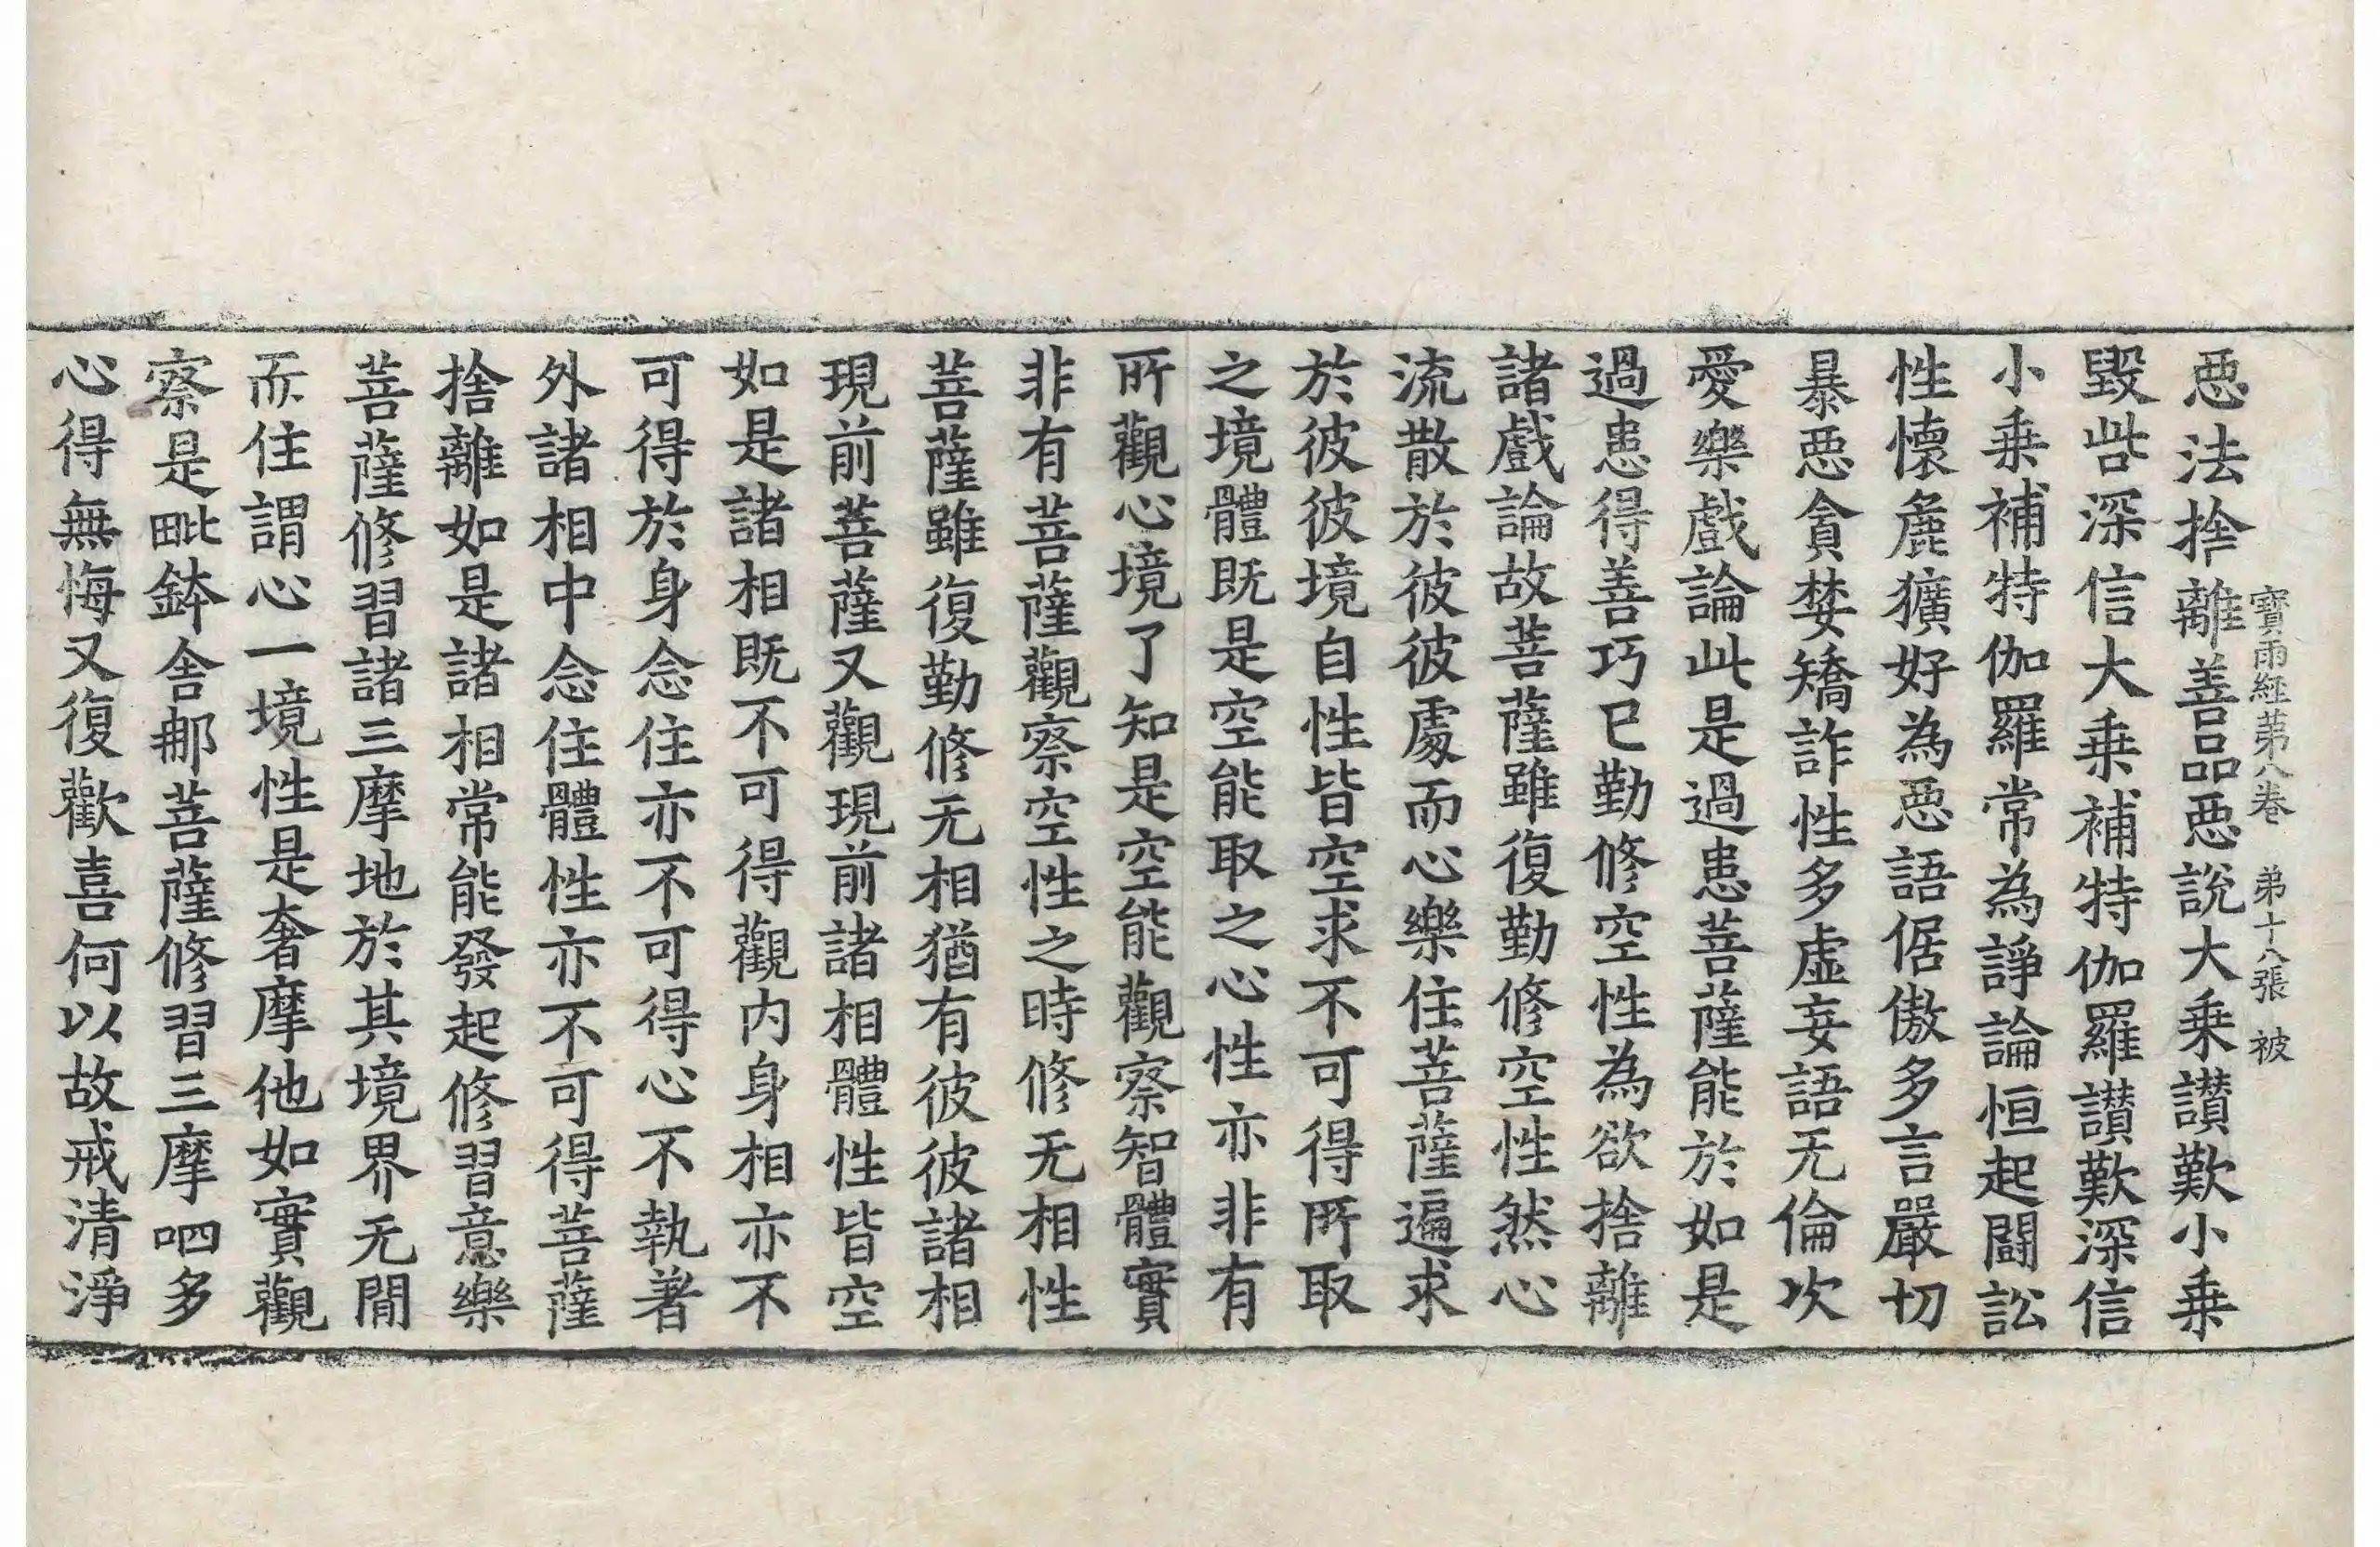 寶雨経苐八卷 弟十八張 被
惡法捨離善品惡說大乗讃歎小乗
毀呰深信大乗補特伽羅讃歎深信
小乗補特伽羅常為諍論恒起鬪訟
性懷麁獷好為惡語倨傲多言嚴切
暴惡貪婪矯詐性多虛妄語无倫次
愛樂戲論此是過患菩薩能於如是
過患得善巧已勤修空性為欲捨離
諸戲論故菩薩雖復勤修空性然心
流散於彼彼處而心樂住菩薩遍求
於彼彼境自性皆空求不可得所取
之境體既是空能取之心性亦非有
所觀心境了知是空能觀察智體實
非有菩薩觀察空性之時修无相性
菩薩雖復勤修无相猶有彼彼諸相
現前菩薩又觀現前諸相體性皆空
如是諸相既不可得觀内身相亦不
可得於身念住亦不可得心不執著
外諸相中念住體性亦不可得菩薩
捨離如是諸相常能發起修習意樂
菩薩修習諸三摩地於其境界无間
而住謂心一境性是奢摩他如實觀
察是毗鉢舍那菩薩修習三摩呬多
心得無悔又復歡喜何以故戒清淨